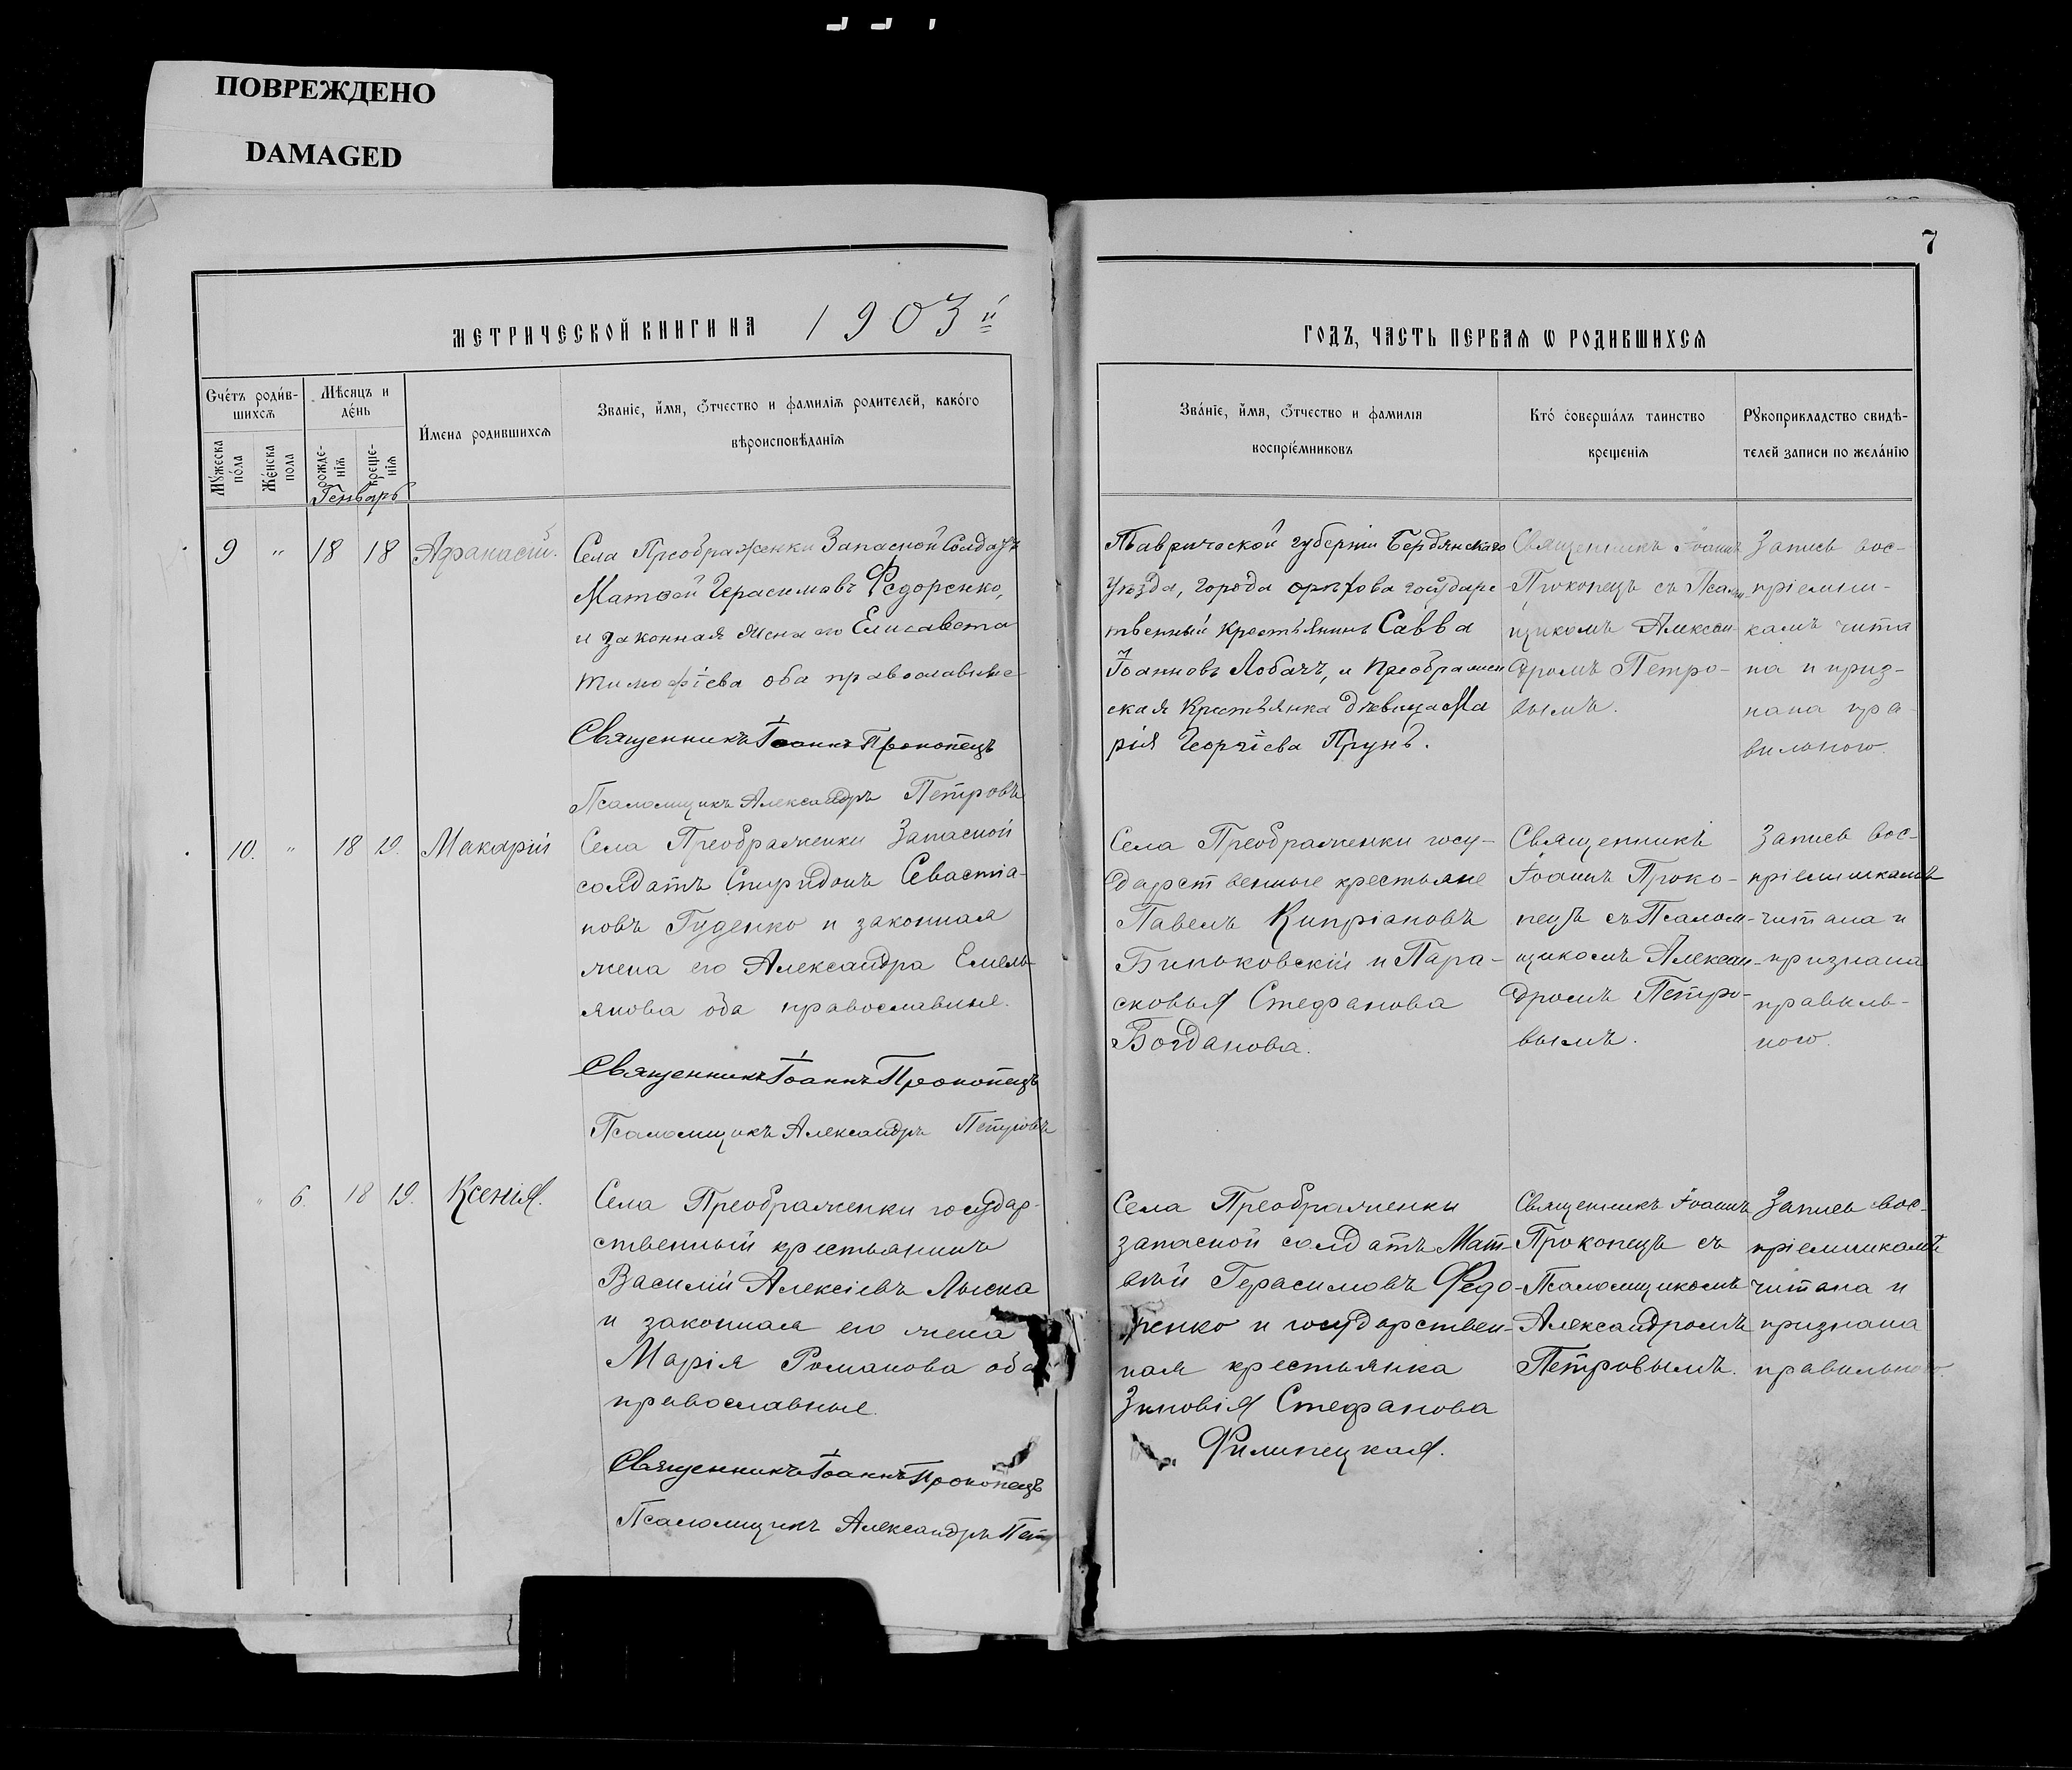 ПОВРЕЖДЕНО
DAMAGED
7
МЕТРИЧЕСКОЙ КНИГИ НА 1903й
ГОДЪ, ЧАСТЬ ПЕРВАЯ Ѡ РОДИВШИХСѦ
Счétъ родúв-
шихсѧ
Мѣсяцъ и
дéнь
И́мена родившихсѧ
Званіе, и́мя, ѻ́тчество и фамиліѧ родителей, какóго
вѣроисповѣданіѧ
Звáніе, и́мя, ѻ́тчество и фамилія
воспріéмниковъ
Ктó совершáлъ таинство
крещенія
Рꙋкоприкладство свидѣ-
телей записи по желáнію
Мꙋжеска
пóла
Жéнска
пола
рожде-
ніѧ
креще-
ніѧ
Генварь
9 „ 18 18 Афанасій.
Села Преображенки Запасной Солдатъ
Матвей Герасимовъ Федоренко,
и законная жена его Елисавета
Тимофіева оба православные
Священникъ Іоаннъ Прокопецъ
Псаломщикъ Александръ Петровъ
Таврической губерніи Бердянскаго
уезда, города орѣхова государс
твенный крестьянинъ Савва
Іоанновъ Лобачъ, и Преображен
ская Крестьянка девица Ма
рія Георгіева Прунь.
Священникъ Іоаннъ
Прокопецъ съ Псалом-
щикомъ Алексан
дромъ Петро-
вымъ.
Запись вос-
пріемни-
камъ чита
на и приз-
нана пра
вильною.
10. „ 18 19. Макарій
Села Преображенки Запасной
солдатъ Спиридонъ Севастіа-
новъ Гуденко и законная
жена его Александра Емель-
янова оба православные.
Священникъ Іоаннъ Прокопецъ
Псаломщикъ Александръ Петровъ
Села Преображенки госу-
дарственные крестьяне
Павелъ Кипріановъ
Биньковскій и Пара-
сковья Стефанова
Богданова.
Священникъ
Іоаннъ Проко-
пецъ съ Псалом-
щикомъ Алексан-
дромъ Петро-
вымъ.
Запись вос-
пріемникамъ
читана и
признана
правиль-
ною.
„ 6. 18 19. Ксенія.
Села Преображенки государ-
ственный крестьянинъ
Василій Алексіевъ Лыска
и законная его жена
Марія Романова оба
православные.
Священникъ Іоаннъ Прокопецъ
Псаломщикъ Александръ Пет
Села Преображенки
запасной солдатъ Мат-
вѣй Герасимовъ Федо-
ренко и государствен-
ная крестьянка
Зиновія Стефанова
Филипецкая.
Священникъ Іоаннъ
Прокопецъ съ
Псаломщикомъ
Александромъ
Петровымъ.
Запись вос-
пріемникамъ
читана и
признана
правильною.